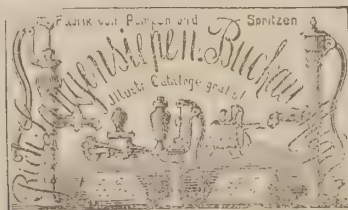 Fabrik von Pumpen und Spritzen
Rich. Langensiepen: Buckau
Illustr. Cataloge gratis!